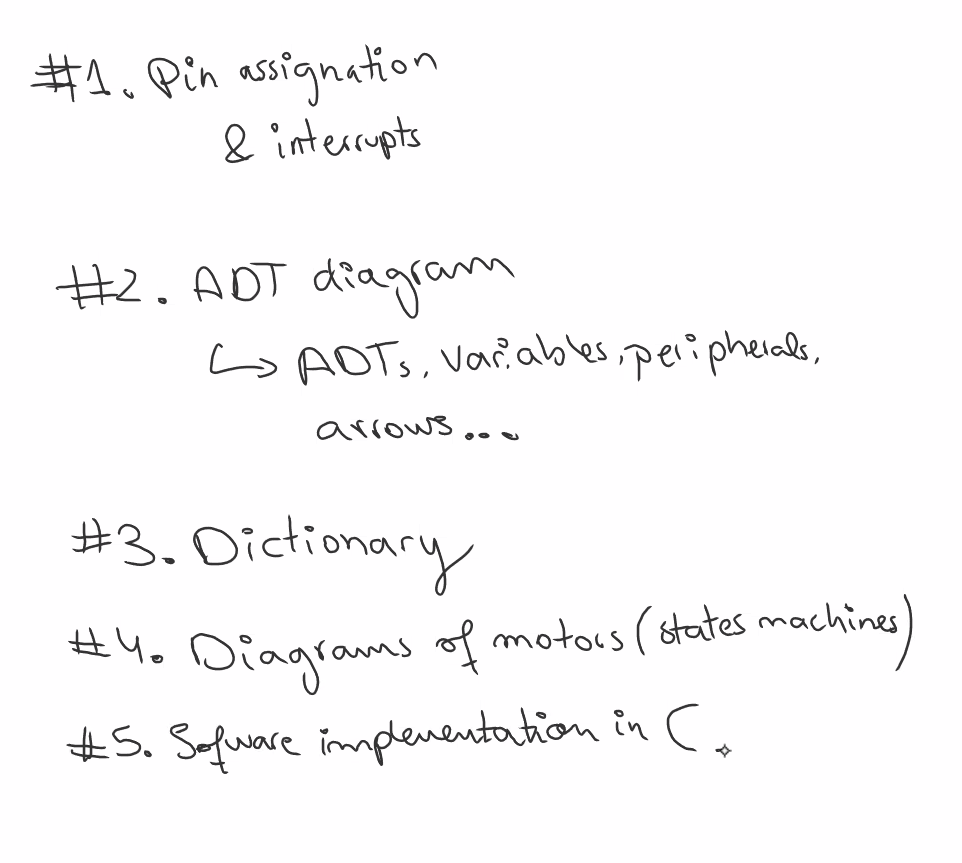 #1. Pin assignation
& interrupts
#2. ADT diagram
↳ ADTs, variables, peripherals,
arrows...
#3. Dictionary
#4. Diagrams of motors (states machines)
#5. Sofware implementation in C.